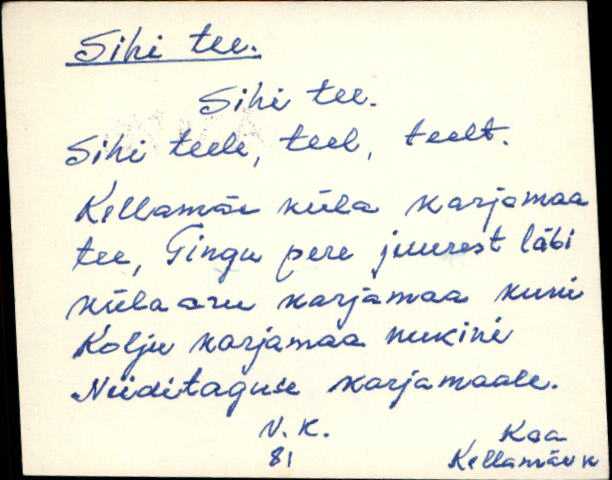 Sihi tee.
Sihi tee.
Sihi teele, teel, teelt.
Kellamäe küla karjamaa
tee, Tingu pere juurest läbi
külaaru karjamaa kuni
Kolju karjamaa nukini
Niiditaguse karjamaale.
V. K. Kaa
81 Kellamäe k